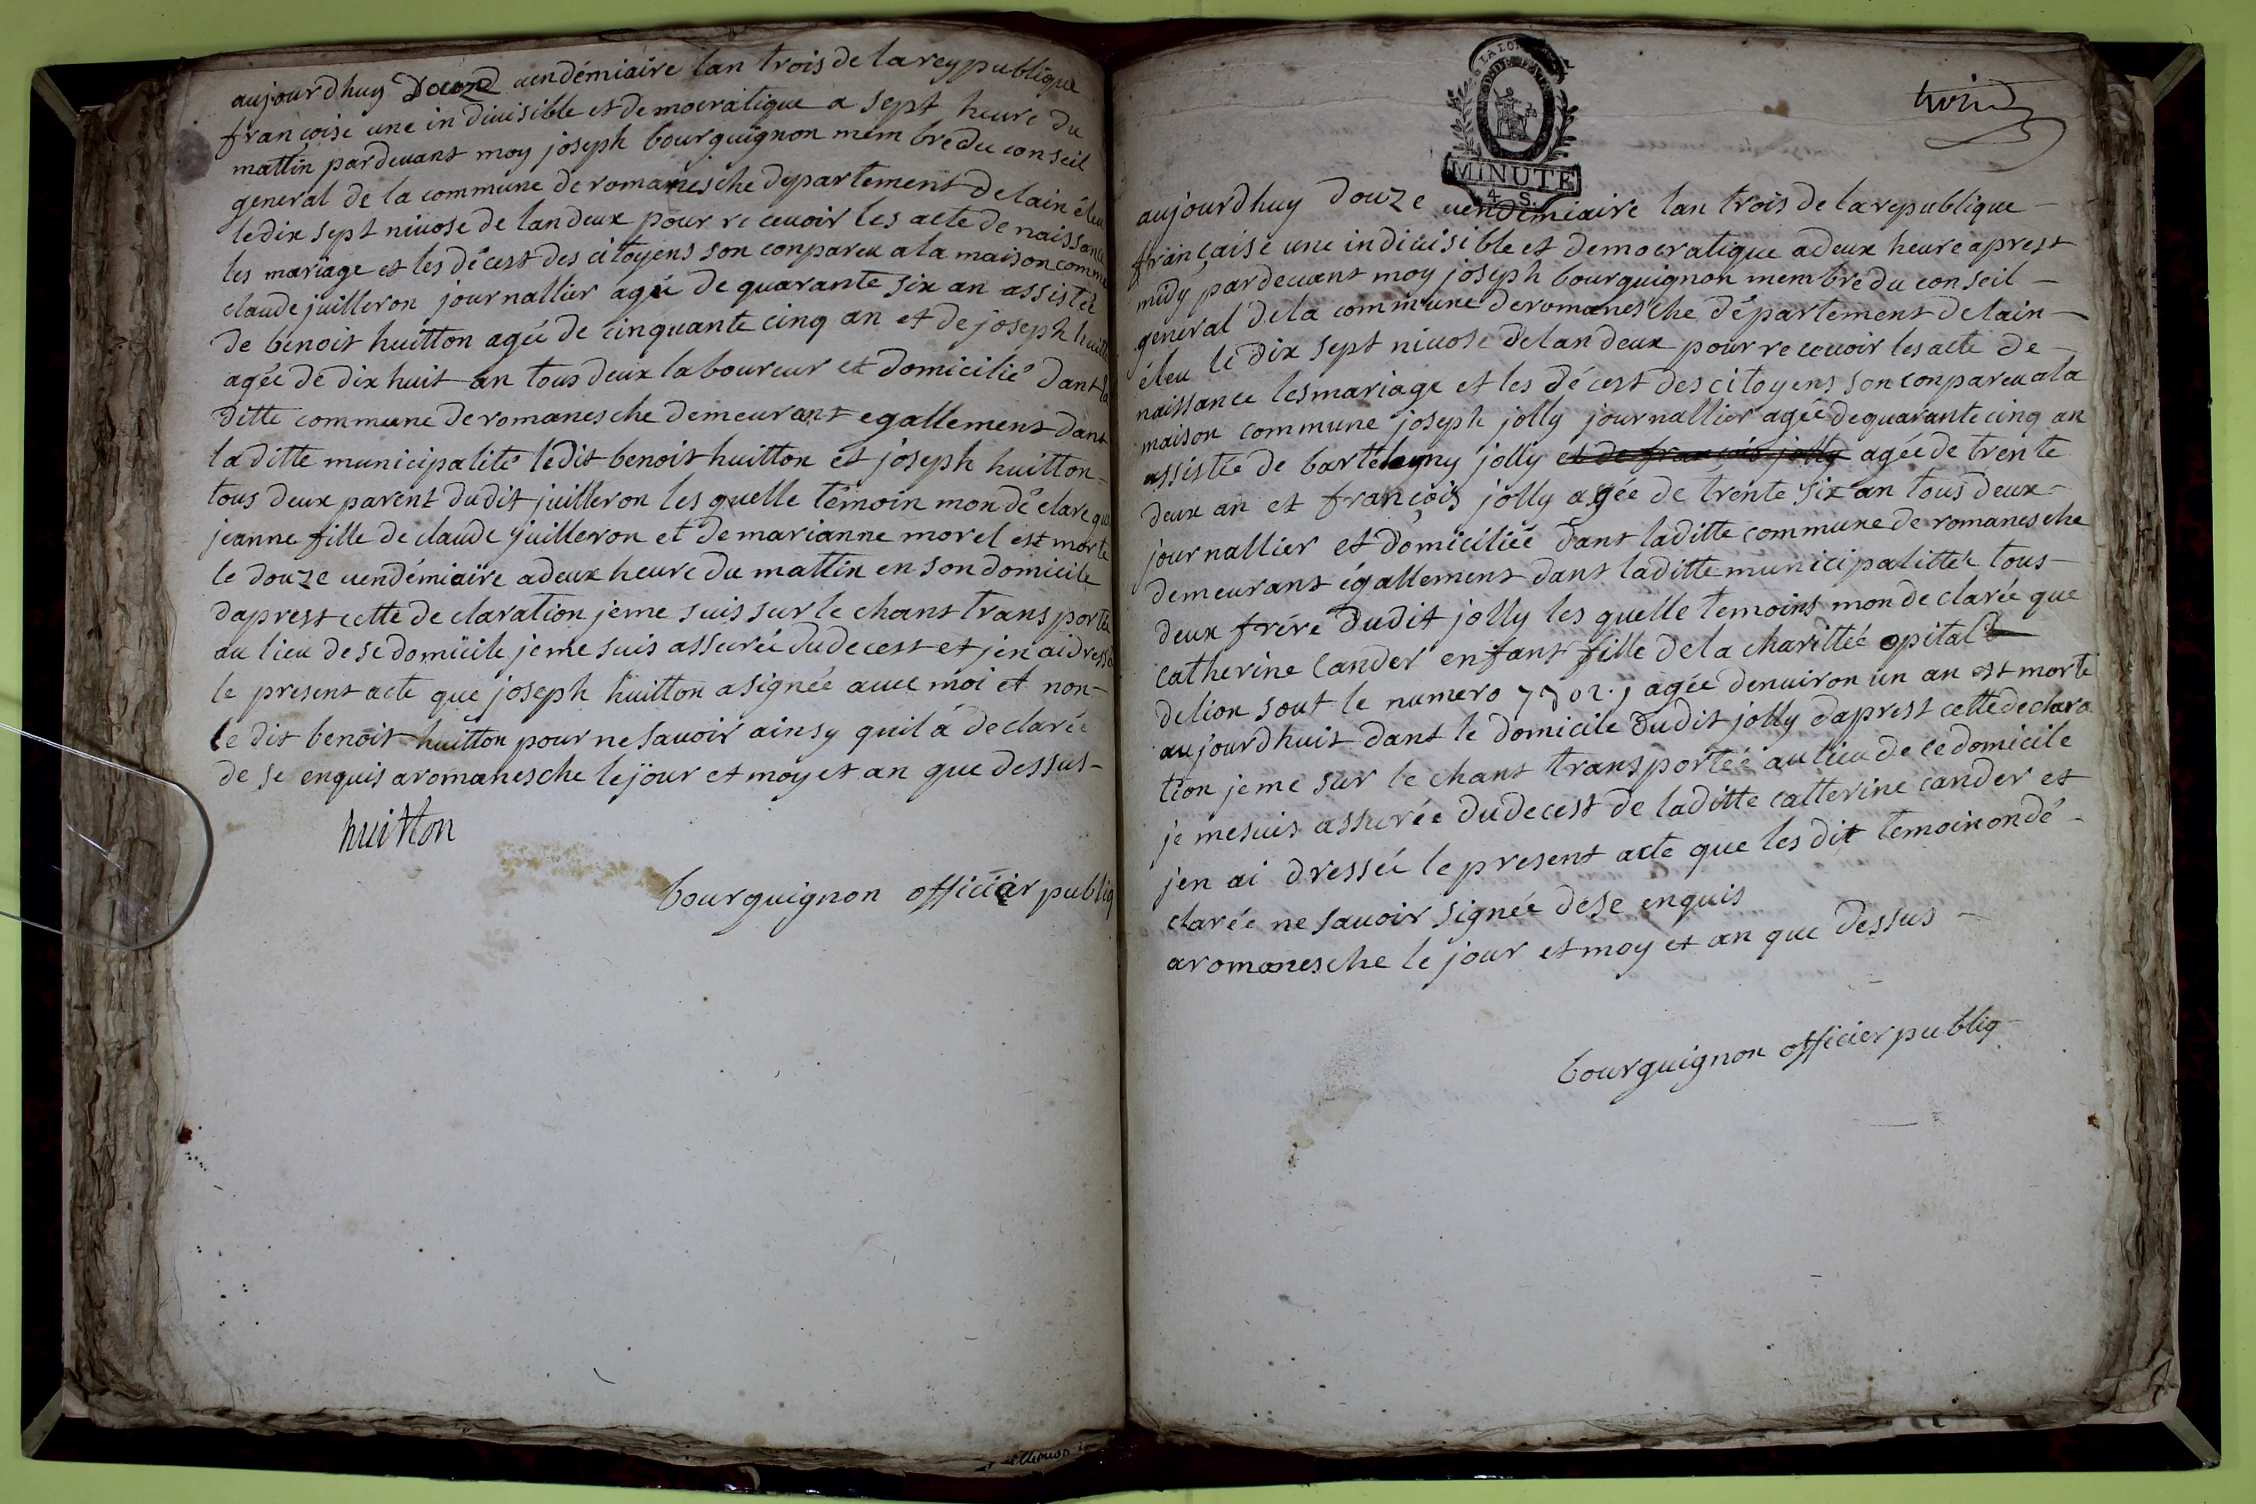 aujourdhuy Douze uendémiaire lan trois de lareypublique
francoise une in diuisible et democratique a sept heure du
mattin pardeuant moy joseph bourguignon mem bre du conseil
general de la commune de romanesche departement delain éleu
le dix sept niuose de lan deux pour re ceuoir les acte de naissance
les mariage et les décest des citoyens son conpareu ala maison commune
claude juilleron journallier ageé de quarante six an assistée
de benoit huitton ageé de cinquante cinq an et de joseph huitton
agée de dix huit an tous deux laboureur et domicilié dant la
ditte commune de romanesche demeurant egallement dant
la ditte municipalité ledit benoit huitton et joseph huitton -
tous deux parent dudit juilleron les quelle témoin mon dé clare que
jeanne fille de claude juilleron et de marianne morel est morte
le douze uendémiaire a deux heure du mattin en son domicile
daprest cette de claration jeme suis sur le chant trans portée
au lieu de se domicile jeme suis assurée du decest et jen ai dressé
le present acte que joseph huitton a signée auec moi et non -
le dit benoit huitton pour ne sauoir ainsy quil a declarée
de se enquis aromanesche le jour et moy et an que dessus -
huitton
bourguignon officier publiq
trois
MINUTE
4. S.
aujourdhuy douze uendémiaire lan trois de larepublique -
française une indiuisible et democratique a deux heure aprest
midy pardeuant moy joseph bourguignon membre du conseil -
general de la commune deromanesche département delain -
éleu le dix sept niuose de lan deux pour re ceuoir les acte de -
naissance les mariage et les décest des citoyens son conpareu ala
maison commune joseph jolly journallier agée dequarante cinq an
assistée de bartélemy jolly et de françois jolly agée de trente
deux an et françois jolly agée de trente six an tous deux -
journallier et domiciliée dant laditte commune de romanesche
demeurant égallement dant laditte municipalittée tous -
deux frére dudit jolly les quelle temoins mon declarée que
catherine Cander enfant fille de la charittée opital
delion sout le numero agée denuiron un an est morte
aujourdhuit dant le domicile dudit jolly daprest cette declara
tion jeme sur le chant transportée au lieu de ce domicile
je mesuis assurée dudecest de laditte catterine cander et
jen ai dressée le present acte que les dit temoin on dé -
clarée ne sauoir signée dese enquis
aromanesche le jour et moy et an que dessus -
bourguignon officier publiq -